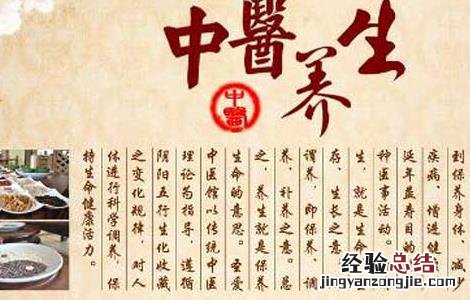 中醫养生
中醫
到保养身体、减少
疾病、增进健康、
延年益寿目的
种医事活动。
生，就是生命
存、生长之意
谓养，即保养、调
养、补养之意。总
之，养生就是保养
生命的意思。圣爱
中医馆以传统中医
理论为指导，遵循
阴阳五行生化收藏
之变化规律，对人
体进行科学调养，保
持生命健康活力。
经验总结
jingyanzongjie.com